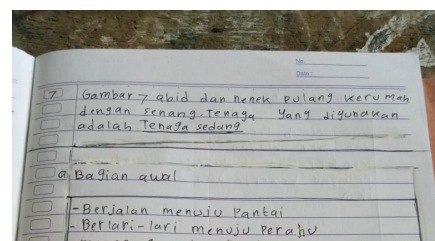 No.
Date:
7 Gambar 7 abid dan nenek pulang kerumah
dengan senang. Tenaga yang digunakan
adalah Tenaga sedang
a, Bagian awal
- Berjalan menuju Pantai
- Berlari-lari menuju Perahu